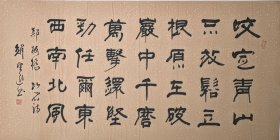 咬定青山
不放鬆立
根原在破
巖中千磨
萬擊還堅
勁任爾東
西南北風
鄭板橋竹石詩